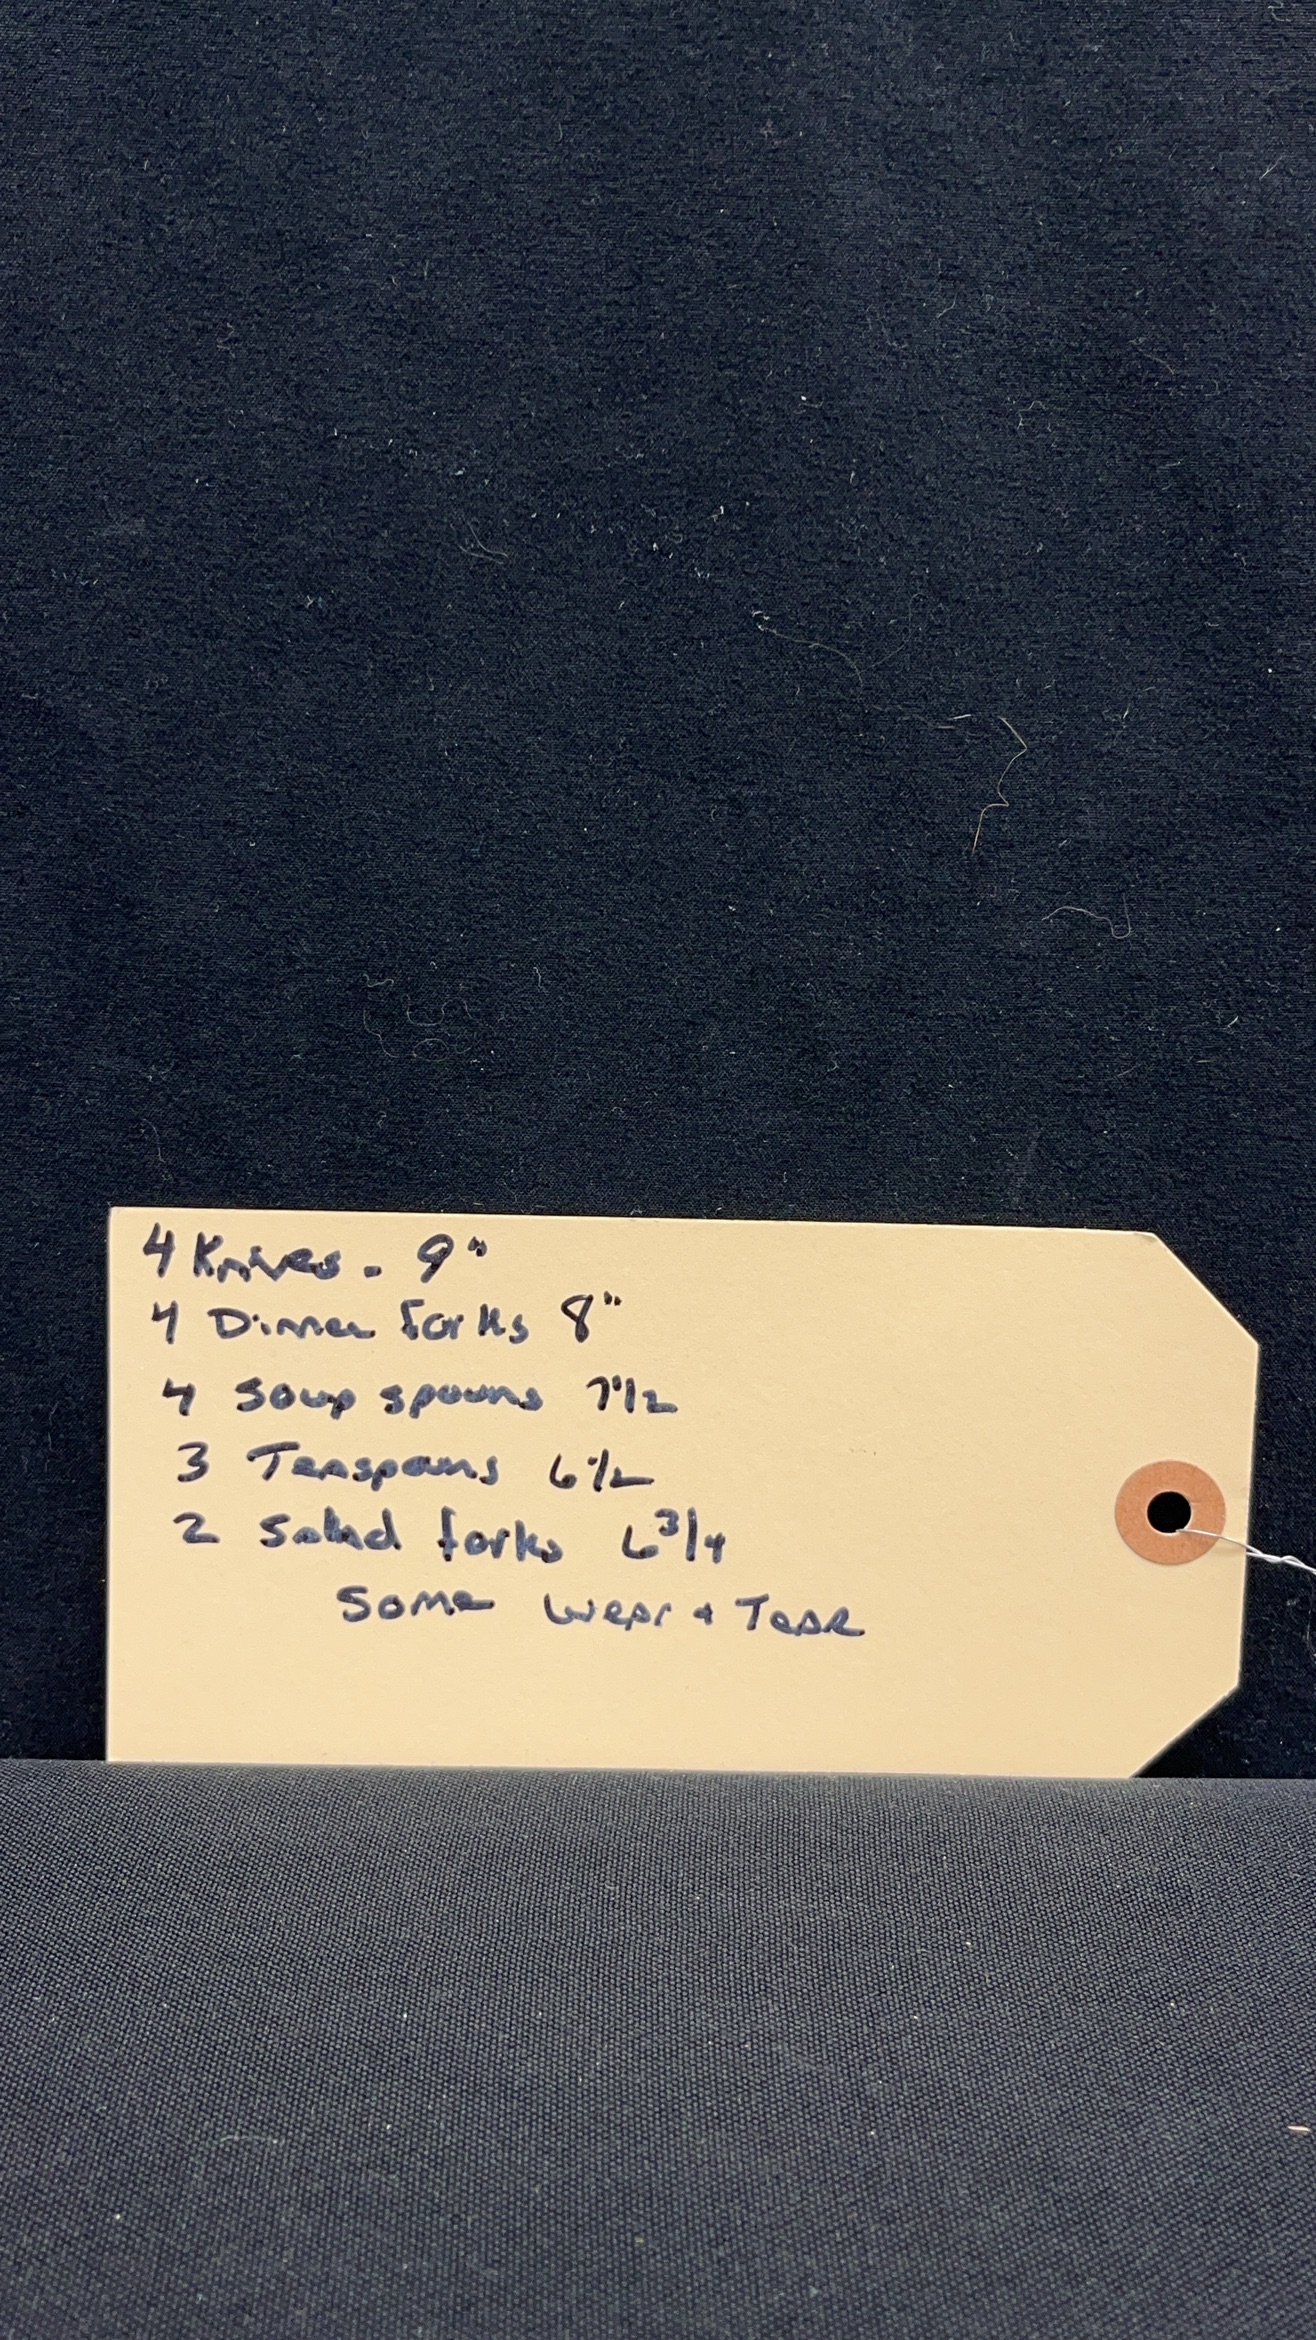 4 Knives - 9"
4 Dinner forks 8"
4 Soup spoons 7 1/2
3 Teaspoons 6 1/2
2 Salad forks 6 3/4
Some wear + Tear